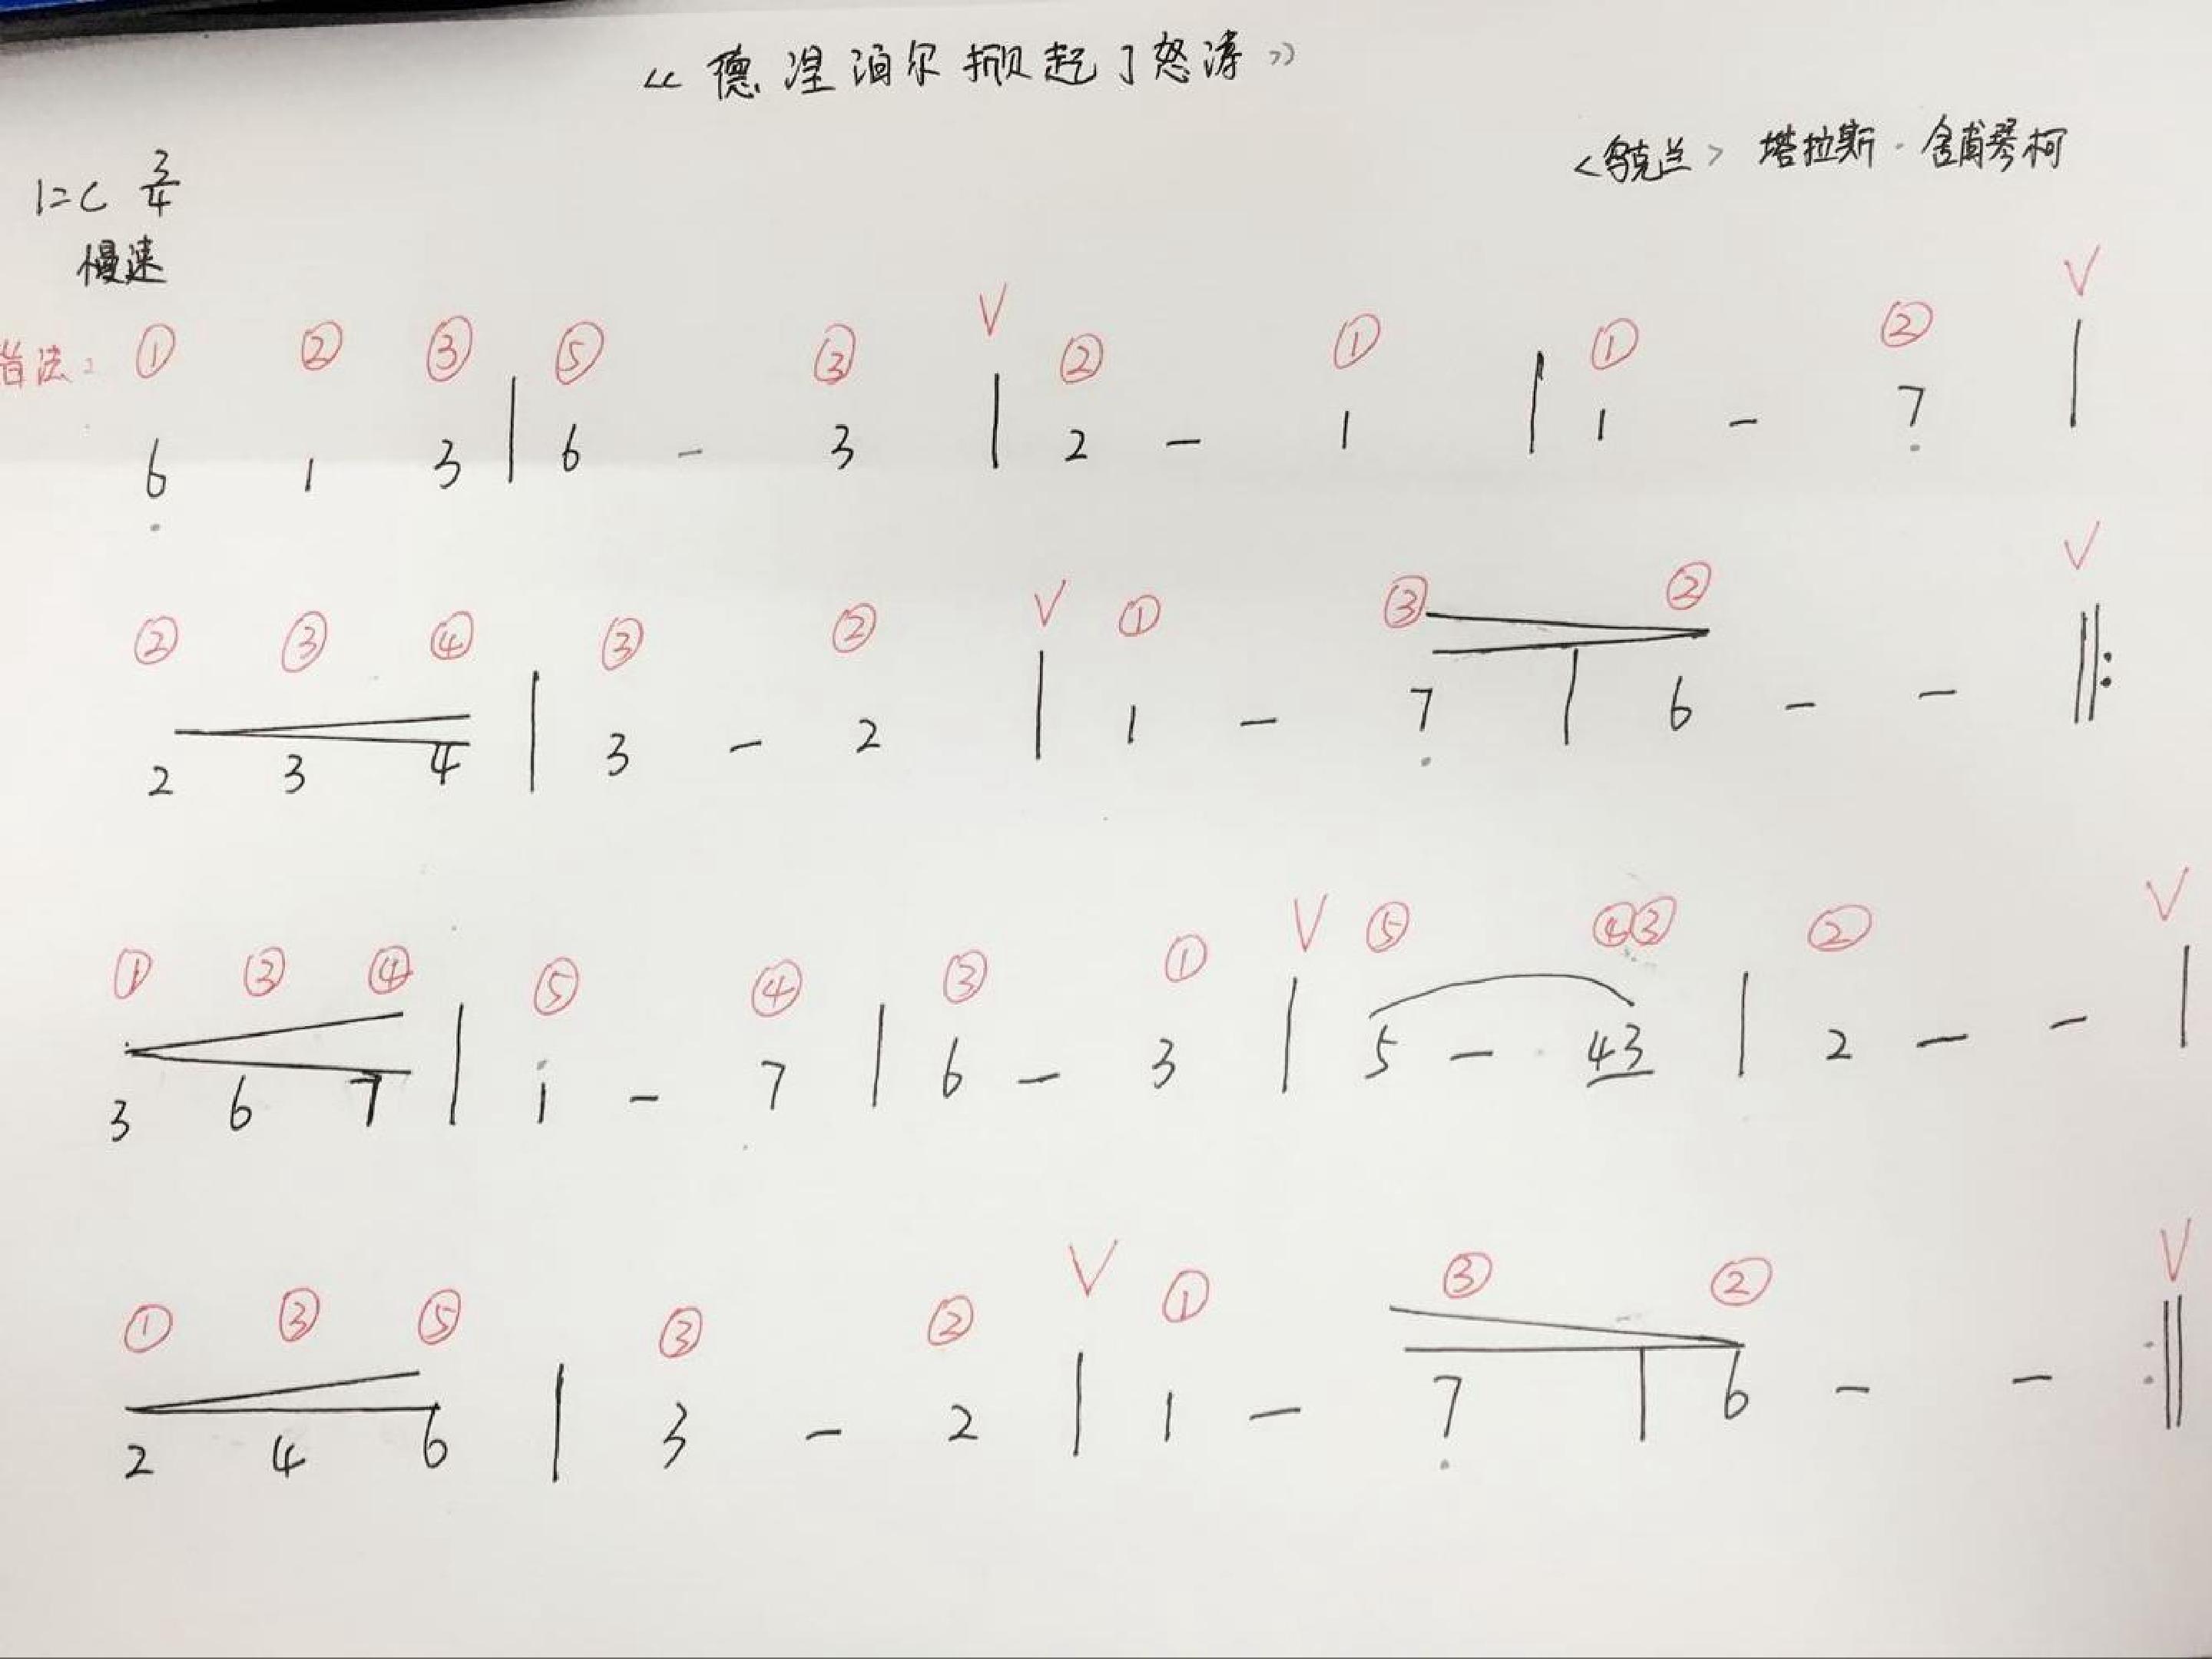 《德涅泊尔掀起了怒涛》
<乌克兰> 塔拉斯·舍甫琴柯
1=C 3/4
慢速
指法: ① ② ③ ⑤ ③ V ② ① ① ② V
6̣ 1 3 | 6 - 3 | 2 - 1 | 1 - 7̣ |
② ③ ④ ③ ② V ① ③ ② V
2 3 4 | 3 - 2 | 1 - 7̣ | 6 - - ‖:
① ③ ④ ⑤ ④ ③ ① V ⑤ ④③ ② V
3 6 7 | 1̇ - 7 | 6 - 3 | 5 - 43 | 2 - - |
① ③ ⑤ ③ ② V ① ③ ② V
2 4 6 | 3 - 2 | 1 - 7̣ | 6 - - :‖